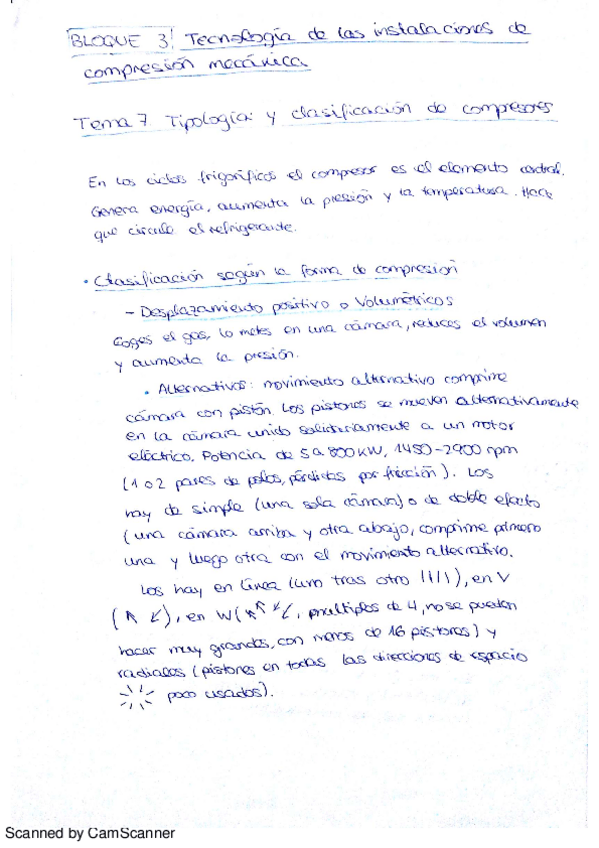 BLOQUE 3: Tecnología de las instalaciones de
compresión mecánica
Tema 7 Tipología y clasificación de compresores
En los ciclos frigoríficos el compresor es el elemento central.
Genera energía, aumenta la presión y la temperatura. Hace
que circule el refrigerante.
• Clasificación según la forma de compresión
- Desplazamiento positivo o Volumétricos
Coges el gas, lo metes en una cámara, reduces el volumen
y aumenta la presión.
• Alternativos: movimiento alternativo comprime
cámara con pistón. Los pistones se mueven alternativamente
en la cámara unido solidariamente a un motor
eléctrico. Potencia de 5 a 800 kW, 1450-2900 rpm
(1 o 2 pares de polos, pérdidas por fricción). Los
hay de simple (una sola cámara) o de doble efecto
(una cámara arriba y otra abajo, comprime primero
una y luego otra con el movimiento alternativo.
Los hay en línea (uno tras otro ////), en V
(↖ ↙), en W (↖↖↙↙, múltiplos de 4, no se pueden
hacer muy grandes, con menos de 16 pistones) y
radiales (pistones en todas las direcciones de espacio
poco usados).
Scanned by CamScanner